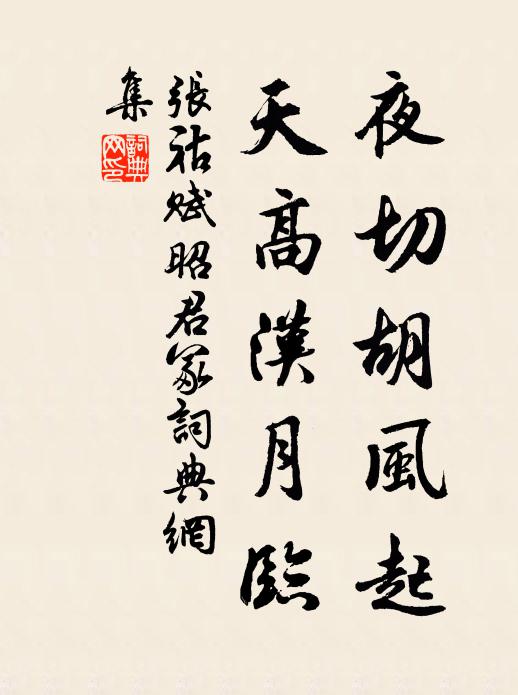 夜切胡風起
天高漢月臨
張祜賦昭君冢詞典網
集
詞典網印